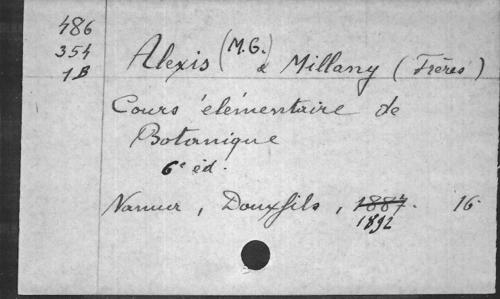 486
354
1B
Alexis (M.G.) & Millany (Frères)
Cours élémentaire de
Botanique
6e éd.
Namur, Douxfils, 1887. 16
1892